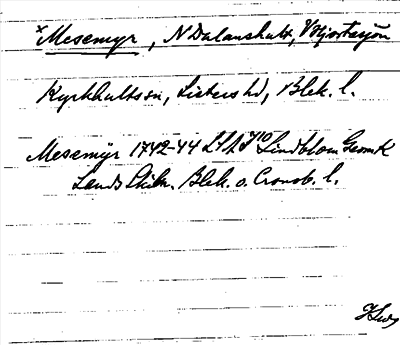 ×Mesemyr, N Dalanshult, V Hjortesjön
Kyrkhults sn, Listers hd, Blek. l.
Mesemÿr 1742-44 Lindblom Geom K
Lands Skilln. Blek. o. Cronob. l.